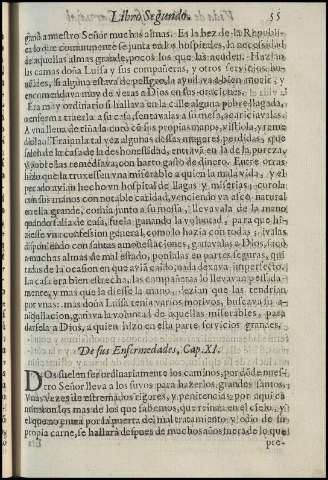 Libro Segundo. 55
gana a nuestro Señor muchas almas. Es la hez de la Republi-
ca lo que comunmente se junta en los hospitales, la necessidad
de aquellas almas grande, pocos los que las acuden. Hazian
las camas doña Luisa y sus compañeras, y otros servicios hu-
mildes, si alguna estava de peligro, la ayudava a bien morir, y
encomendava muy de veras a Dios en sus oraciones.
Era muy ordinario si hallava en la calle alguna pobre llagada,
enferma traerla a su casa, sentavala a su mesa, acariciavala.
A una llena de tiña la curò con sus propias manos, vistiola, y reme
diola. Traian tal vez algunas destas mugeres perdidas, que
salen de la casa de la deshonestidad, entrava en la de la pureza,
y todas las remediava, con harto gasto de dinero. Entre otras
hizo que la truxessen una miserable a quien la mala vida, y el
pecado avian hecho un hospital de llagas y miserias; curola
con sus manos con notable caridad, venciendo ya asco natural
en ella grande, comia junto a su mesa, llevavala de la mano
quando salia de casa, fuela ganando la voluntad, para que hi-
ziesse una confession general, como lo hazia con todas; ivalas
disponiendo con santas amonestaciones, ganavalas a Dios, sacò
a muchas almas de mal estado, ponialas en partes seguras, qui
tadas de la ocasion en que avia caido, nada dexava imperfecto.
La casa era bien estrecha, las compañeras lo llevavan pesada-
mente, y mas que la diesse la mano, dezian que las tendrian
por unas: mas doña Luisa tenia varios motivos, buscava su a
niquilacion, ganava la voluntad de aquellas miserables, para
darsela a Dios, a quien hizo en esta parte servicios grandes.
De sus Enfermedades, Cap. XI.
DOs suelen ser ordinariamente los caminos, por donde nues-
tro Señor lleva a los suyos para hazerlos grandes santos.
Unas vezes de estremados rigores, y penitencias; por aqui ca
minaron los mas de los que sabemos, que reinan en el cielo, y
el que no entra por la puerta del mal tratamiento y odio de su
propia carne, se hallarà despues de muchos años fuera de lo que
pre-